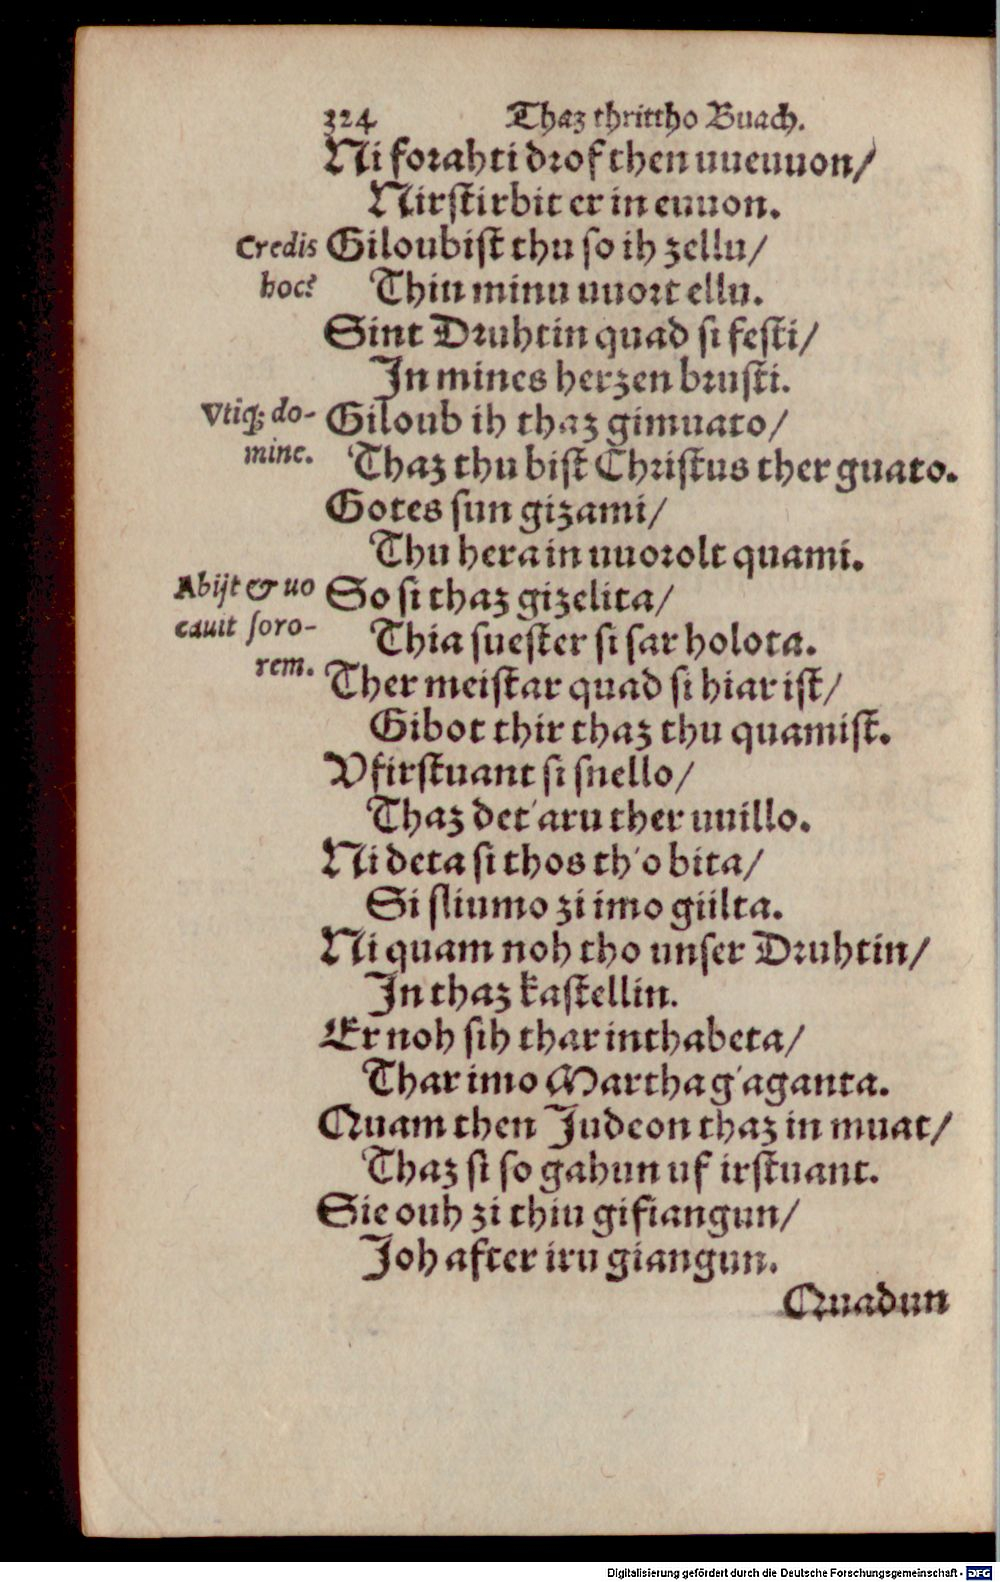 324 Thaz thrittho Buach.
Ni forahti drof then uueuuon/
Nirstirbit er in euuon.
Credis Giloubist thu so ih zellu/
hoc? Thiu minu uuort ellu.
Sint Druhtin quad si festi/
In mines herzen brusti.
Vtiq; do- Giloub ih thaz gimuato/
mine. Thaz thu bist Christus ther guato.
Gotes sun gizami/
Thu hera in uuorolt quami.
Abijt & uo So si thaz gizelita/
cauit soro- Thia suester si sar holota.
rem. Ther meistar quad si hiar ist/
Gibot thir thaz thu quamist.
Vfirstuant si snello/
Thaz det'aru ther uuillo.
Ni deta si thos th'o bita/
Si sliumo zi imo giilta.
Ni quam noh tho unser Druhtin/
In thaz kastellin.
Er noh sih thar inthabeta/
Thar imo Martha g'aganta.
Quam then Judeon thaz in muat/
Thaz si so gahun uf irstuant.
Sie ouh zi thiu gifiangun/
Joh after iru giangun.
Quadun
Digitalisierung gefördert durch die Deutsche Forschungsgemeinschaft - DFG